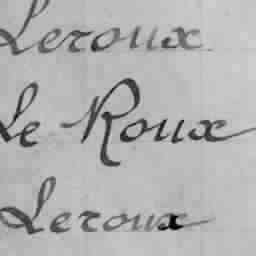 Leroux
Le Roux
Leroux